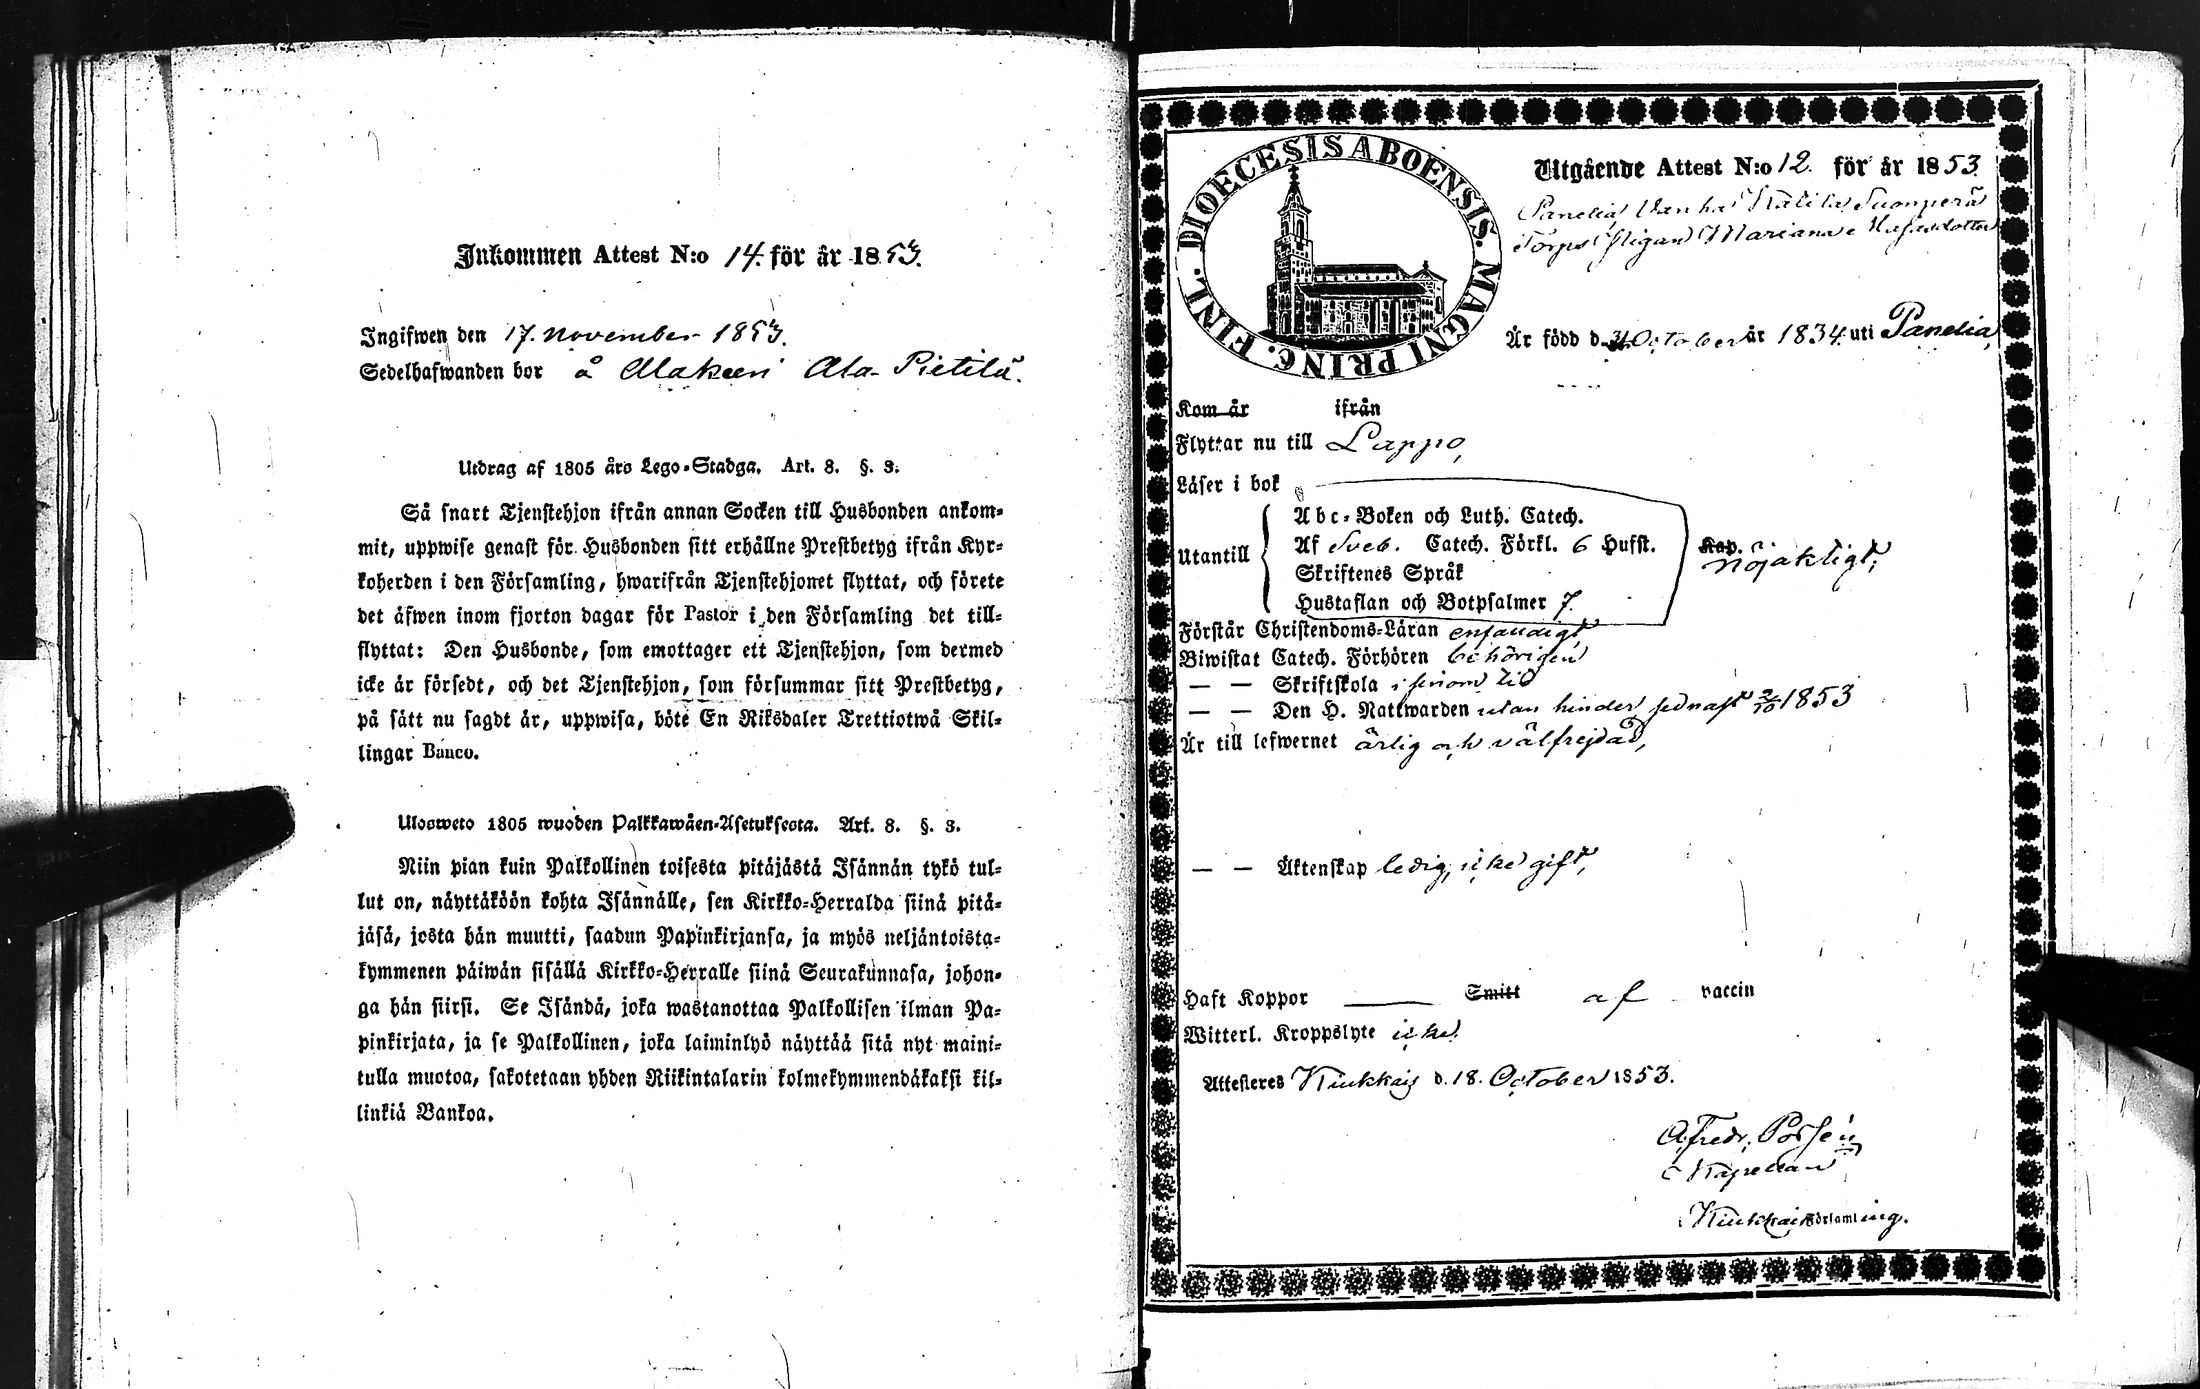 Inkommen Attest N:o 14. för år 1853.
Ingifwen den 17. November 1853.
Sedelhafwanden bor å Alakeeri Ala-Pietilä.
Utdrag af 1805 års Lego-Stadga. Art. 8. §. 3.
Så snart Tjenstehjon ifrån annan Socken till Husbonden ankom-
mit, uppwise genast för Husbonden sitt erhållne Prestbetyg ifrån Kyr-
koherden i den Församling, hwarifrån Tjenstehjonet flyttat, och förete
det äfwen inom fjorton dagar för Pastor i den Församling det till-
flyttat: Den Husbonde, som emottager ett Tjenstehjon, som dermed
icke är försedt, och det Tjenstehjon, som försummar sitt Prestbetyg,
på sätt nu sagdt är, uppwisa, böte En Riksdaler Trettiotwå Skil-
lingar Banco.
Ulosweto 1805 wuoden Palkkawäen-Asetuksesta. Art. 8. §. 3.
Niin pian kuin Palkollinen toisesta pitäjästä Isännän tykö tul-
lut on, näyttäköön kohta Isännälle, sen Kirkko-Herralda siinä pitä-
jäsä, josta hän muutti, saadun Papinkirjansa, ja myös neljäntoista-
kymmenen päiwän sisällä Kirkko-Herralle siinä Seurakunnasa, johon-
ga hän siirsi. Se Isändä, joka wastanottaa Palkollisen ilman Pa-
pinkirjata, ja se Palkollinen, joka laiminlyö näyttää sitä nyt maini-
tulla muotoa, sakotetaan yhden Riikintalarin kolmekymmendäkaksi kil-
linkiä Bankoa.
DIOECESIS ABOENSIS. MAGNI PRINC. FINL.
Utgående Attest N:o 12. för år 1853
Panelia Vanha Kätilä Suonperä
Torps Pigan Mariana
Är född d. October år 1834 uti Panelia,
Kom år ifrån
Flyttar nu till Lappo,
Läser i bok
Utantill
Abc-Boken och Luth. Catech.
Af Sveb. Catech. Förkl. 6 Hufst. Kap.
Skriftenes Språk
Hustaflan och Botpsalmer 7.
nöjaktigt,
Förstår Christendoms-Läran enfaldigt
Biwistat Catech. Förhören behörigen
— — Skriftskola i sinom tid
— — Den H. Nattwarden utan hinder sednast 2/10 1853
Är till lefwernet ärlig och välfrejdad,
— — Äktenskap ledig, icke gift,
Haft Koppor —— Smitt af vaccin
Witterl. Kroppslyte icke.
Attesteres Kiukkais d. 18. October 1853.
Alfredr. Porsén
Kapellan
Kiukkais Församling.